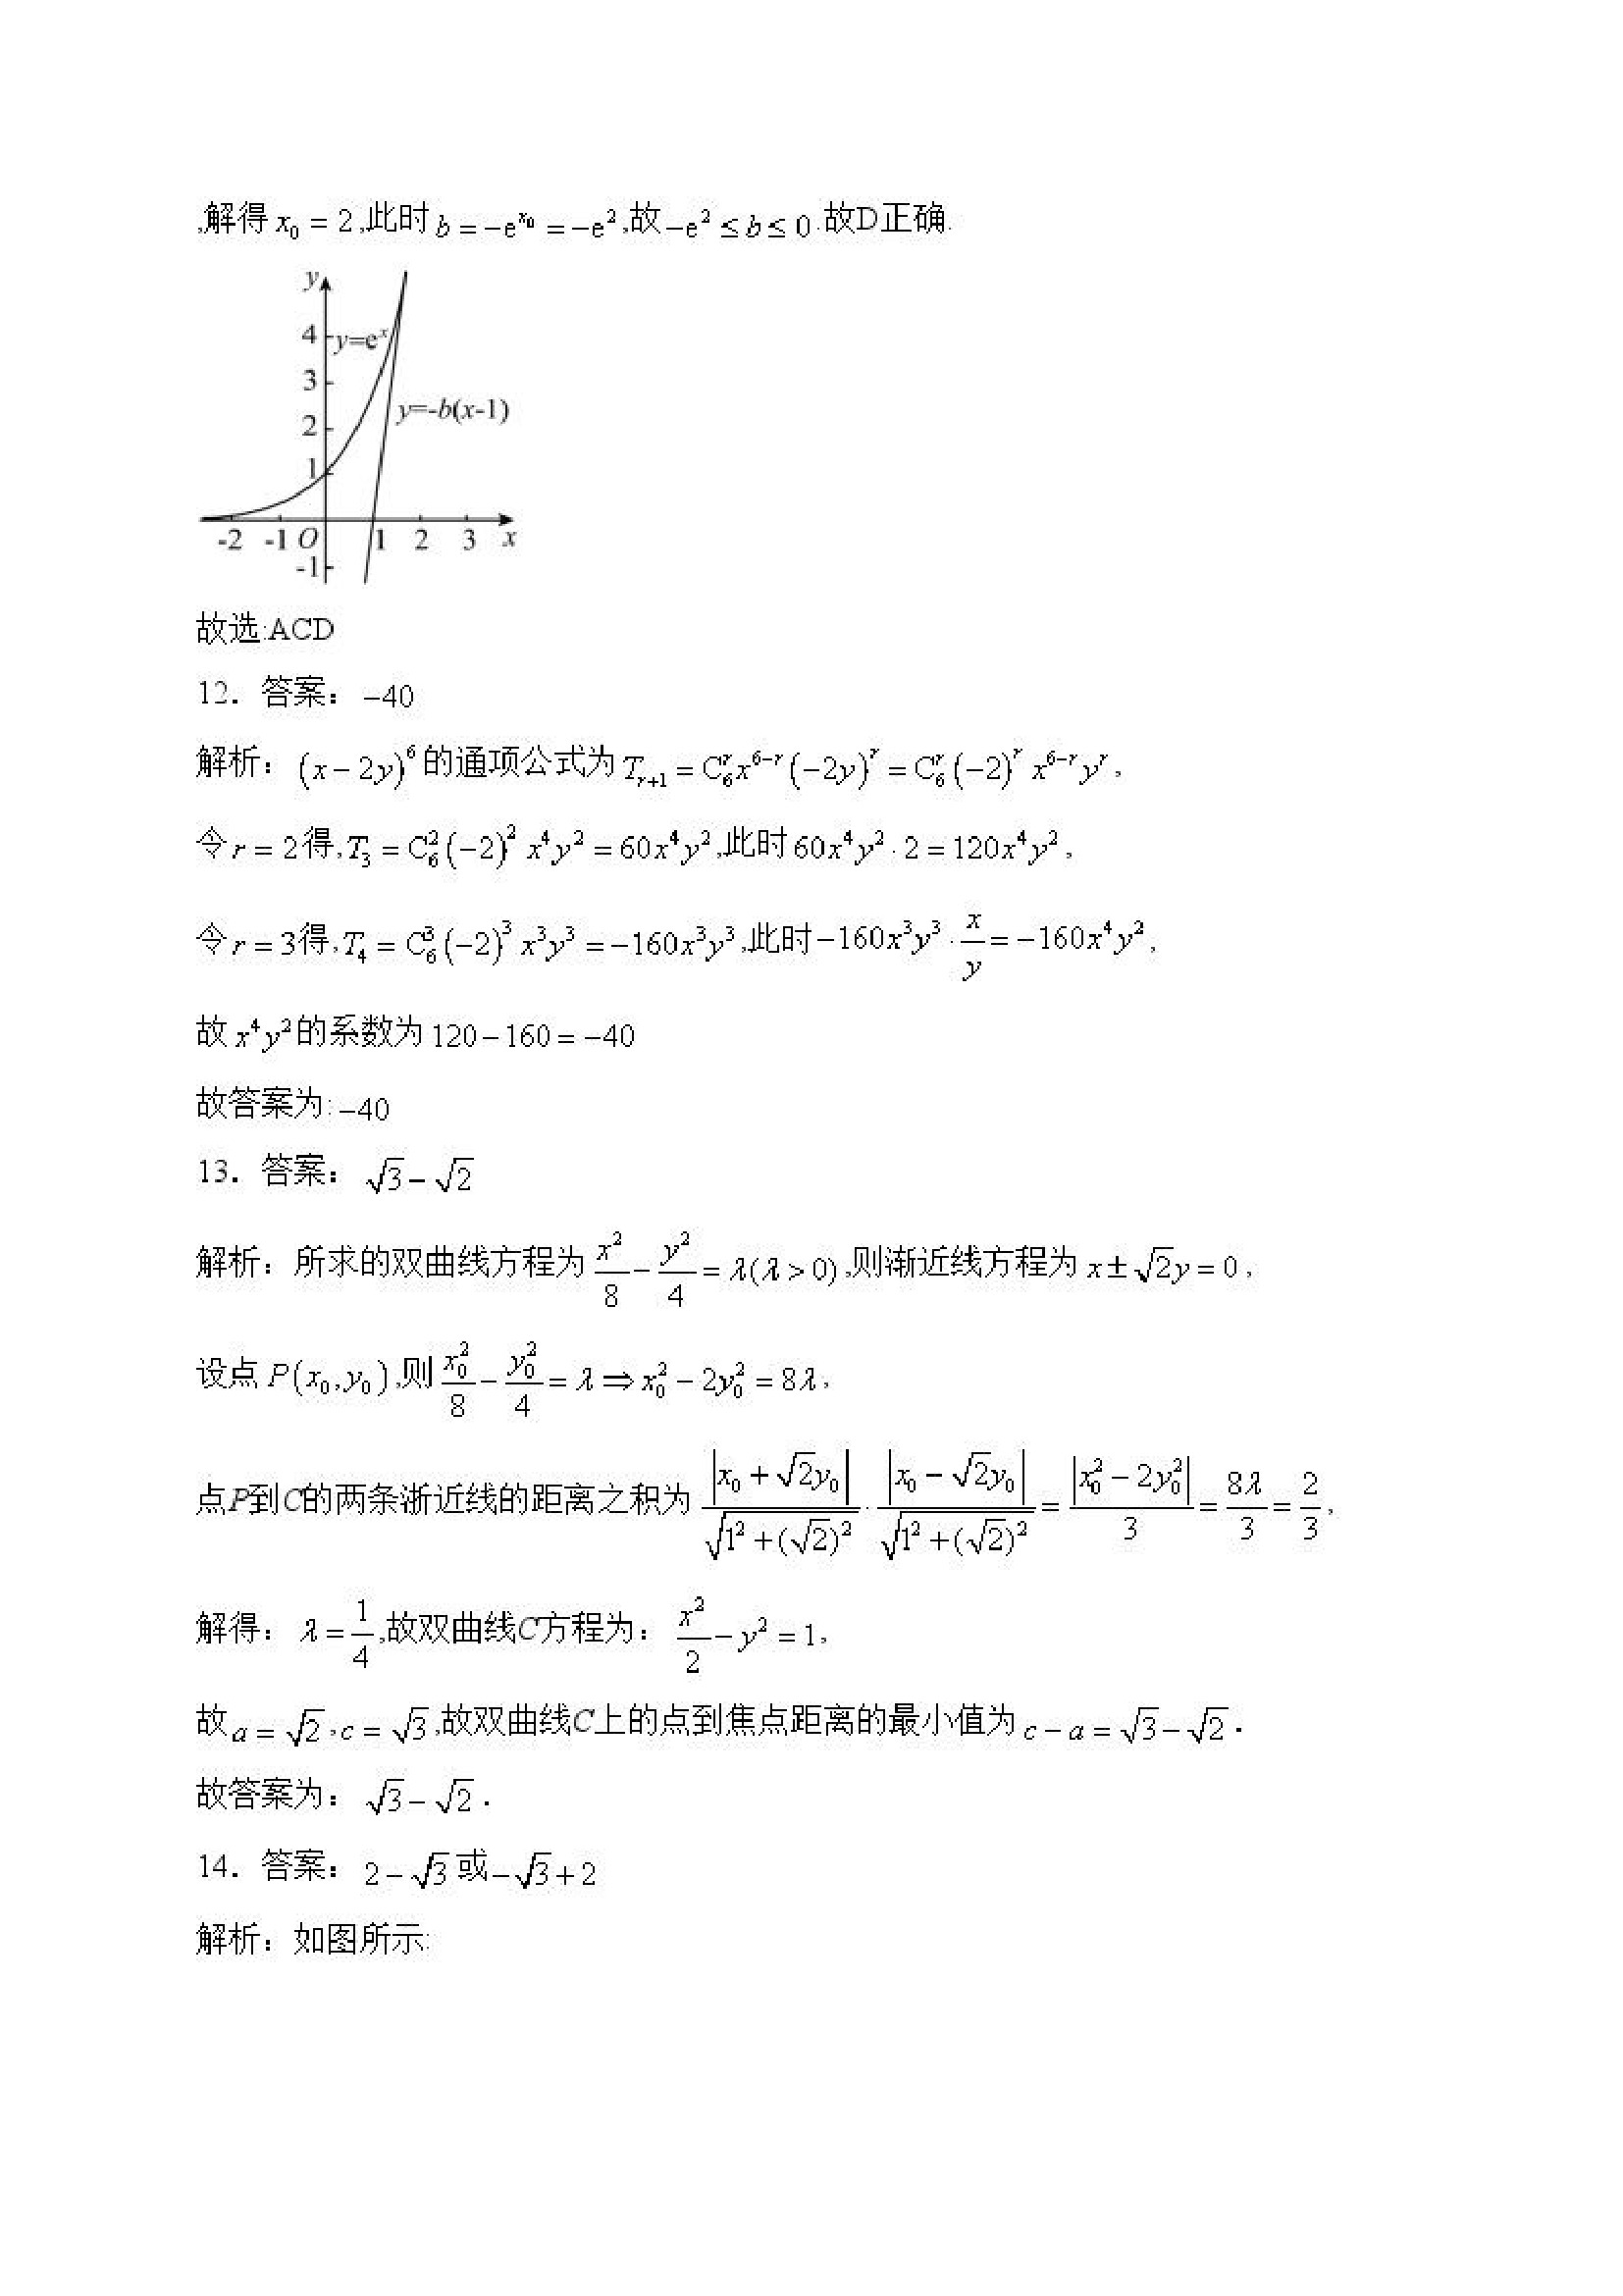 ,解得 x₀ = 2 ,此时 b = −e^{x₀} = −e² ,故 −e² ≤ b ≤ 0 .故D正确.
y
4
y=eˣ
3
y=-b(x-1)
2
1
-2 -1 O 1 2 3 x
-1
故选:ACD
12. 答案： −40
解析： (x − 2y)⁶ 的通项公式为 T_{r+1} = C₆ʳ x^{6−r} (−2y)ʳ = C₆ʳ (−2)ʳ x^{6−r} yʳ ,
令 r = 2 得, T₃ = C₆² (−2)² x⁴y² = 60x⁴y² ,此时 60x⁴y² · 2 = 120x⁴y² ,
令 r = 3 得, T₄ = C₆³ (−2)³ x³y³ = −160x³y³ ,此时 −160x³y³ · x/y = −160x⁴y² ,
故 x⁴y² 的系数为 120 − 160 = −40
故答案为: −40
13. 答案： √3 − √2
解析：所求的双曲线方程为 x²/8 − y²/4 = λ(λ > 0) ,则渐近线方程为 x ± √2y = 0 ,
设点 P(x₀, y₀) ,则 x₀²/8 − y₀²/4 = λ ⇒ x₀² − 2y₀² = 8λ ,
点P到C的两条渐近线的距离之积为 |x₀ + √2y₀|/√(1² + (√2)²) · |x₀ − √2y₀|/√(1² + (√2)²) = |x₀² − 2y₀²|/3 = 8λ/3 = 2/3 ,
解得： λ = 1/4 ,故双曲线C方程为： x²/2 − y² = 1 ,
故 a = √2 , c = √3 ,故双曲线C上的点到焦点距离的最小值为 c − a = √3 − √2 .
故答案为： √3 − √2 .
14. 答案： 2 − √3 或 −√3 + 2
解析：如图所示: